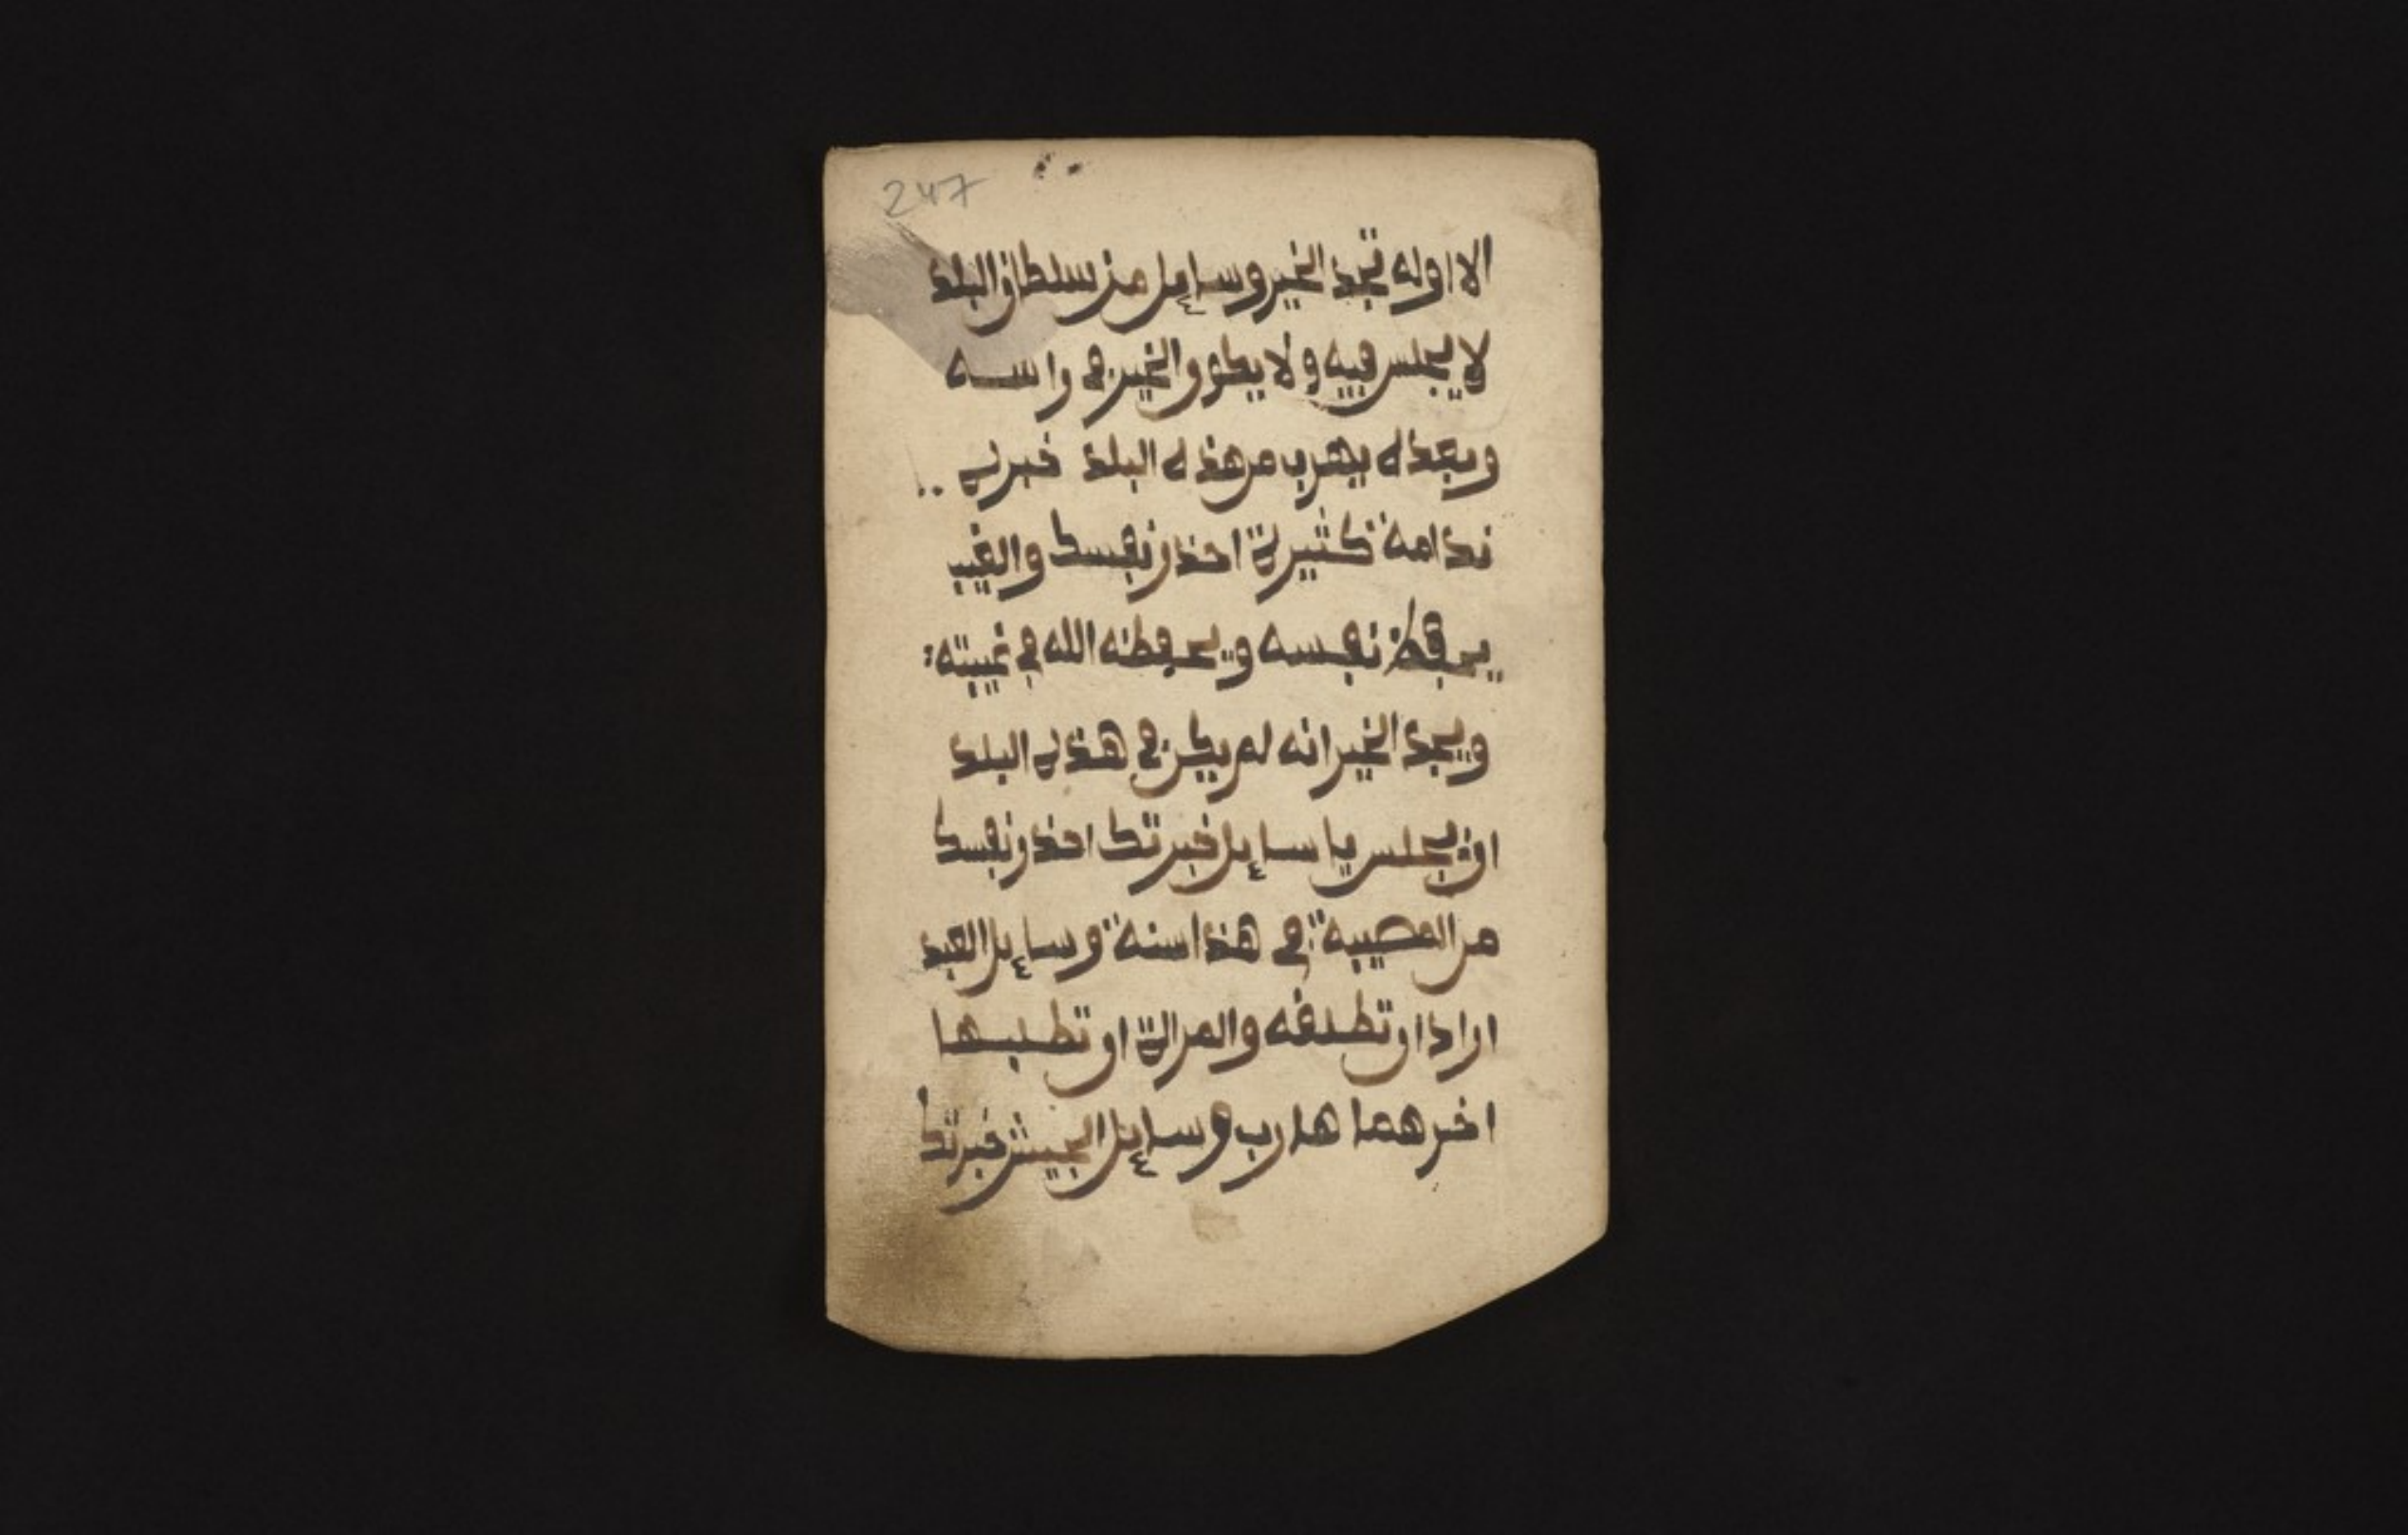 247
الا اوله تجد الخير وسايل من سلطان البلد
لا يجلس فيه ولا يكون الخير في راسه
وبعده يهرب من هذه البلد خبره
ندامة كثيرة احذر نفسك والغيب
يحفظ نفسه ويحفظه الله في غيبته
ويجد الخير انه لم يكن في هذه البلد
ان يجلس يا سايل خبرتك احذر نفسك
من المصيبة في هذا سنة وسايل العبد
اراد ان تطلقه والمراة ان تطلبها
اخرهما هارب وسايل الجيش خبرتك